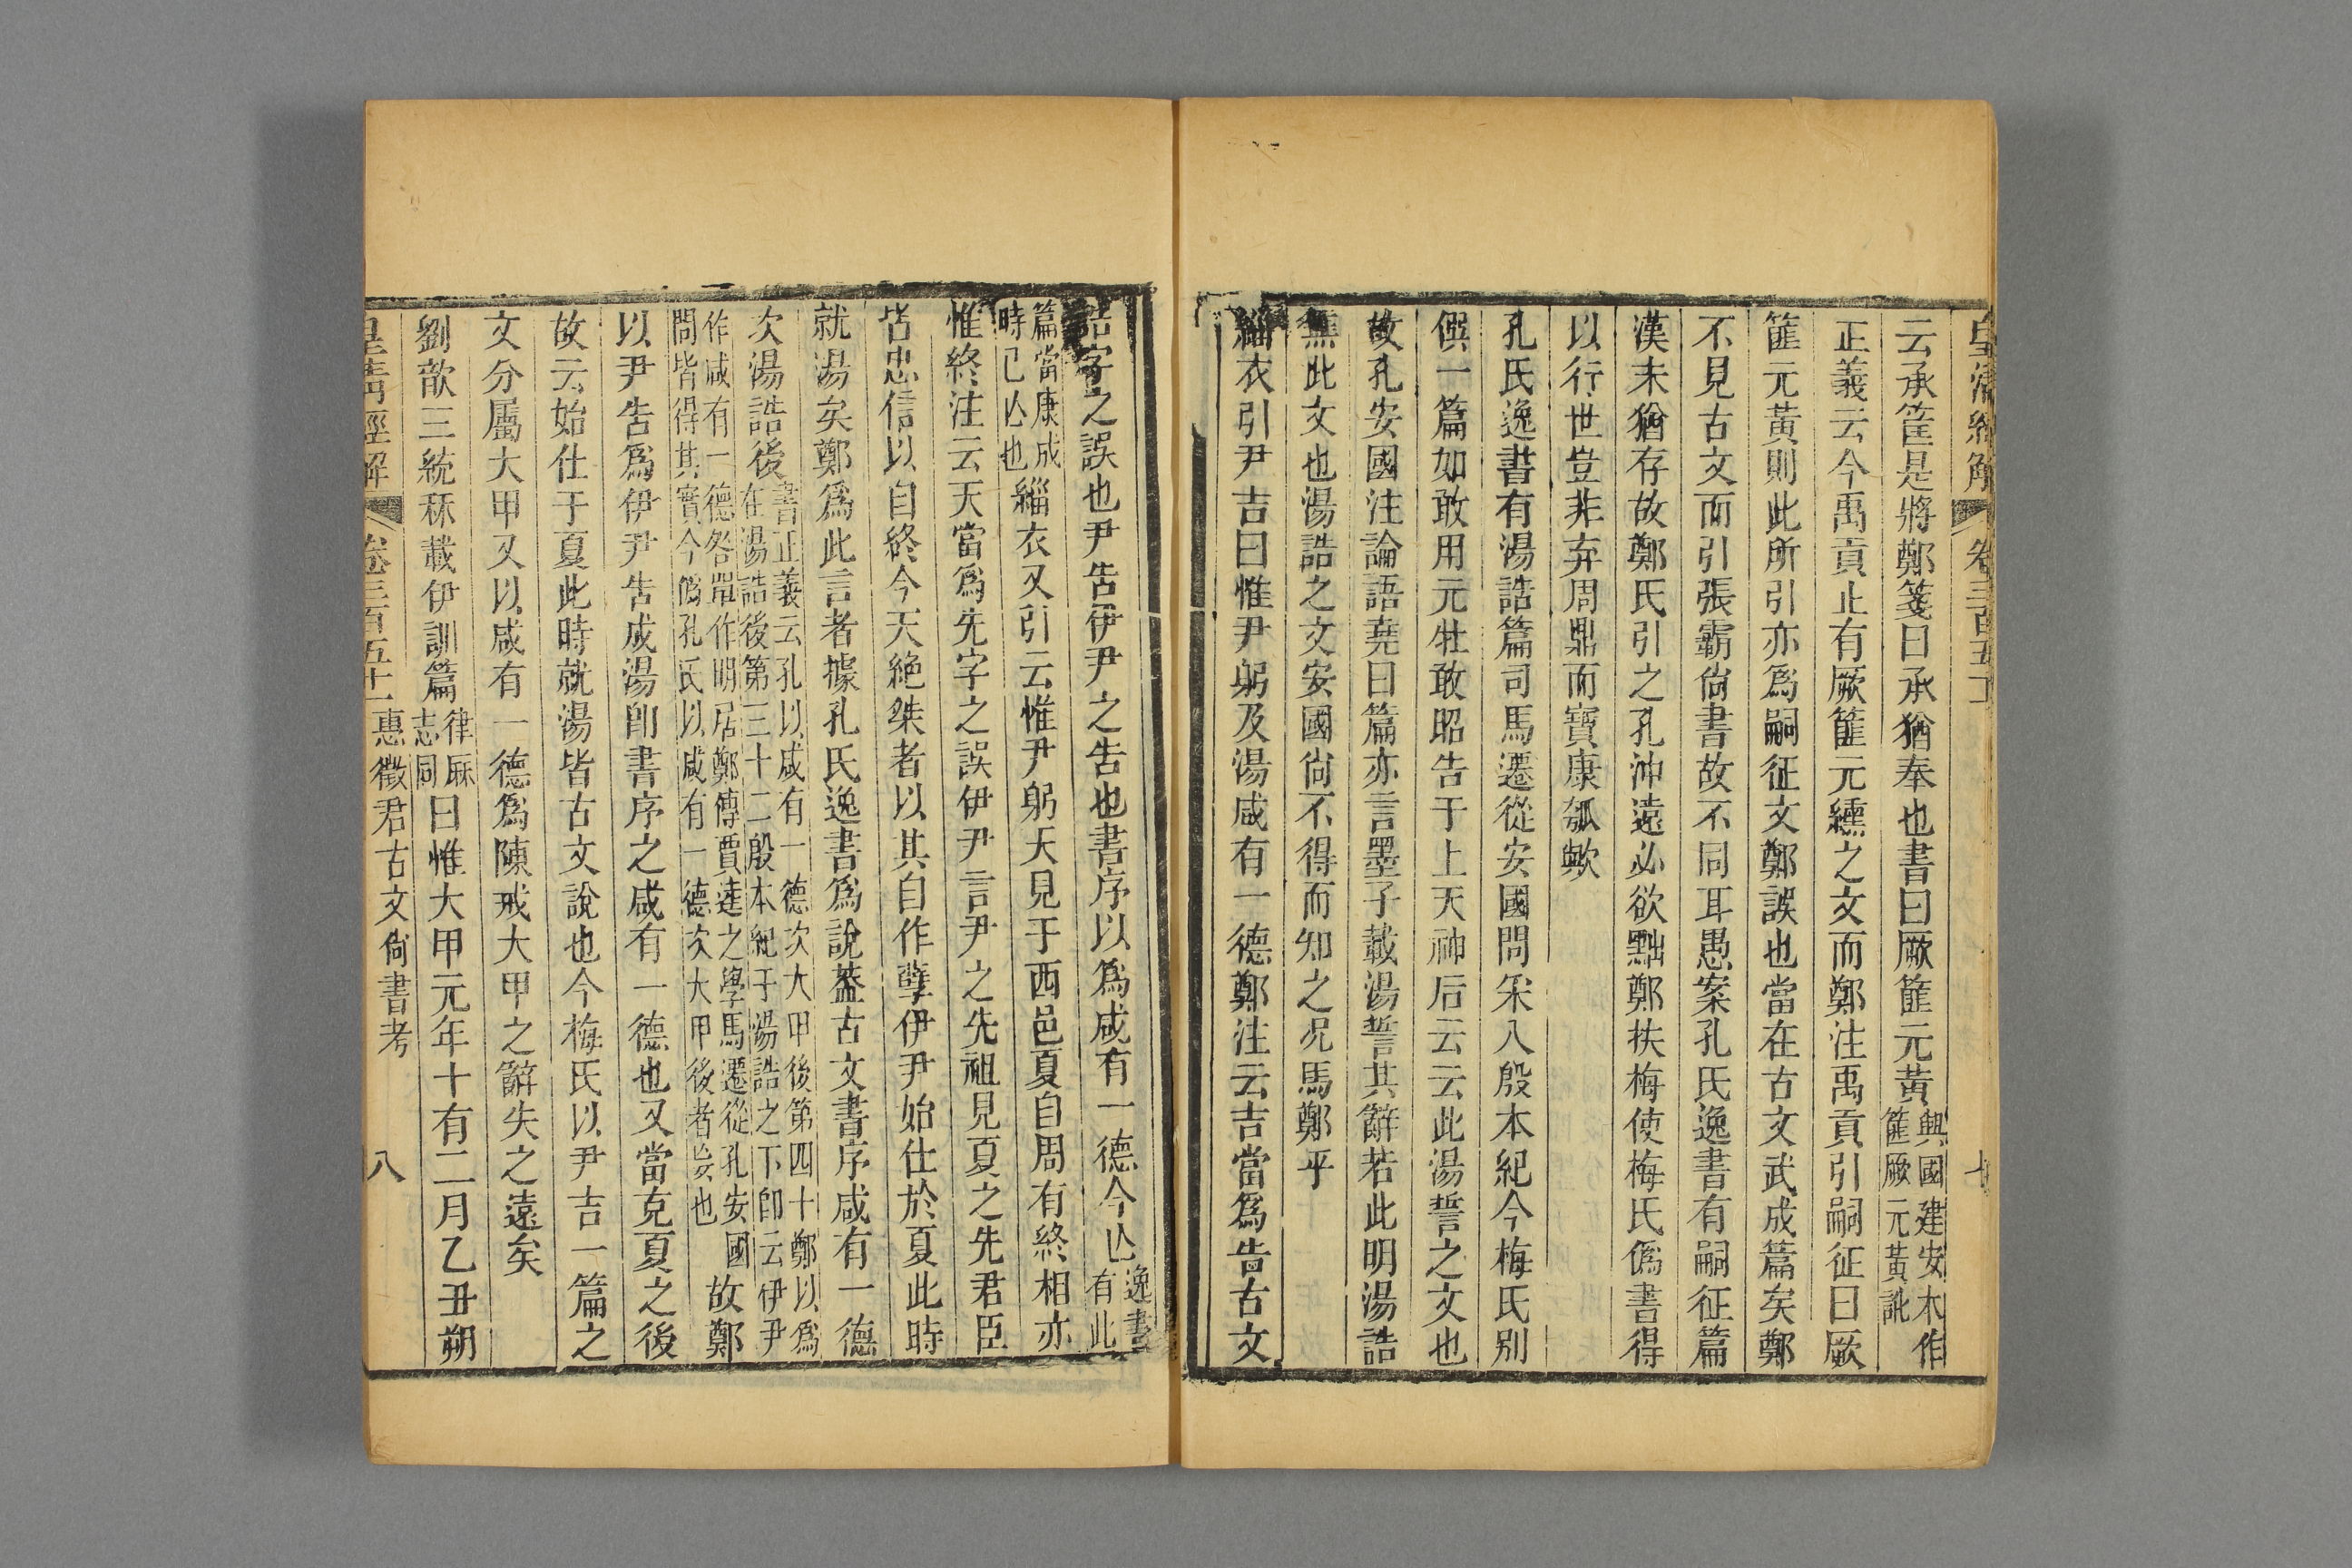 皇清經解 卷三百五十一 七
云承筐是將鄭箋曰承猶奉也書曰厥篚元黃興國建安木作篚厥元黃訛
正義云今禹貢止有厥篚元纁之文而鄭注禹貢引嗣征曰厥
篚元黃則此所引亦爲嗣征文鄭誤也當在古文武成篇矣鄭
不見古文而引張霸尙書故不同耳愚案孔氏逸書有嗣征篇
漢末猶存故鄭氏引之孔沖遠必欲黜鄭扶梅使梅氏僞書得
以行世豈非弃周鼎而寶康瓠歟
孔氏逸書有湯誥篇司馬遷從安國問采入殷本紀今梅氏別
僎一篇如敢用元牡敢昭告于上天神后云云此湯誓之文也
故孔安國注論語堯曰篇亦言墨子載湯誓其辭若此明湯誥
無此文也湯誥之文安國尙不得而知之况馬鄭乎
緇衣引尹吉曰惟尹躬及湯咸有一德鄭注云吉當爲告古文
誥字之誤也尹告伊尹之告也書序以爲咸有一德今亾逸書有此
篇當康成時已亾也緇衣又引云惟尹躬天見于西邑夏自周有終相亦
惟終注云天當爲先字之誤伊尹言尹之先祖見夏之先君臣
皆忠信以自終今天絕桀者以其自作孽伊尹始仕於夏此時
就湯矣鄭爲此言者據孔氏逸書爲說蓋古文書序咸有一德
次湯誥後書正義云孔以咸有一德次大甲後第四十鄭以爲在湯誥後第三十二殷本紀于湯誥之下卽云伊尹
作咸有一德咎單作明居鄭傳賈逵之學馬遷從孔安國問皆得其實今僞孔氏以咸有一德次大甲後者妄也故鄭
以尹告爲伊尹告成湯卽書序之咸有一德也又當克夏之後
故云始仕于夏此時就湯皆古文說也今梅氏以尹吉一篇之
文分屬大甲又以咸有一德爲陳戒大甲之辭失之遠矣
劉歆三統秝載伊訓篇律厤志同曰惟大甲元年十有二月乙丑朔
皇清經解 卷三百五十一 惠徵君古文尙書考 八